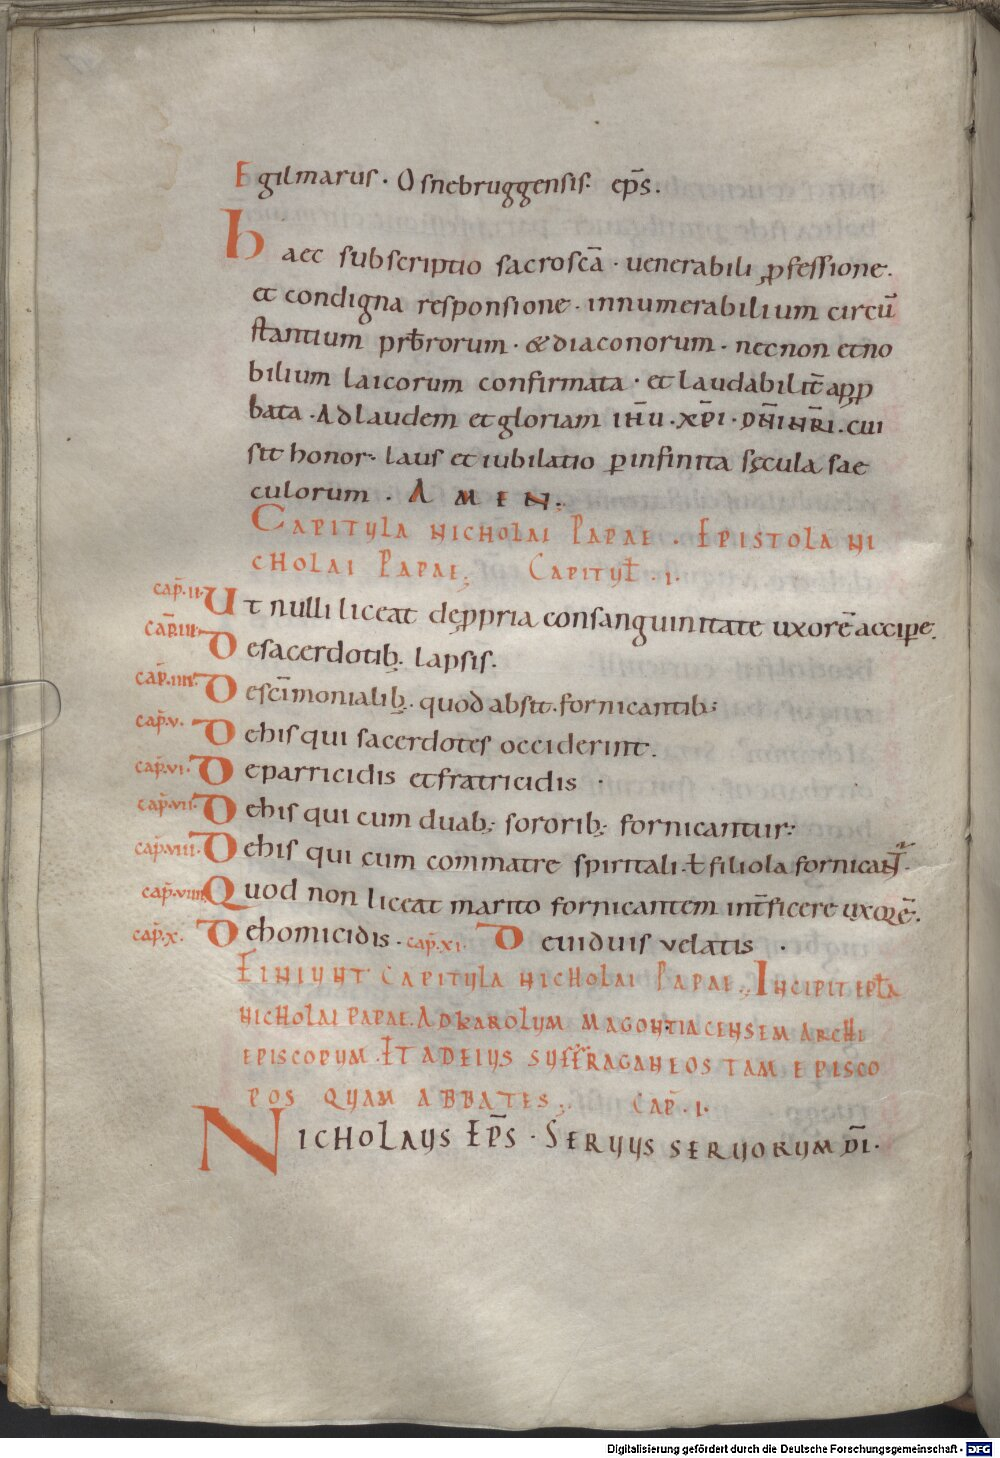 Egilmarus · Osnebruggensis · ep̄s .
haec subscriptio sacroscā · uenerabili ꝓfessione .
et condigna responsione · innumerabilium circū
stantium prb̄rorum · & diaconorum · nec non et no
bilium laicorum confirmata · et laudabilit̄ apꝓ
bata · Ad laudem et gloriam ih̄u · xp̄i · dn̄i nr̄i . cui
sit honor · laus et iubilatio ꝑ infinita sęcula sae
culorum . AMEN .,
CAPITULA NICHOLAI PAPAE . EPISTOLA NI
CHOLAI PAPAE ; CAPITUƚ . I .
cap̄ . ii . Ut nulli liceat de ꝓpria consanguinitate uxorē accipe .
cap̄ . iii . De sacerdotib; lapsis .
cap̄ . iiii . De sc̄imonialib; quod absit . fornicantib;
cap̄ . v . De his qui sacerdotes occiderint .
cap̄ . vi . De parricidis et fratricidis .
cap̄ . vii . De his qui cum duab; sororib; fornicantur :
cap̄ . viii . De his qui cum commatre spiritali . ƚ filiola fornicant̄ .
cap̄ . viiii . Quod non liceat marito fornicantem int̄ficere uxorē .
cap̄ . x . De homicidis . cap̄ . xi . De uiduis velatis .
FINIUNT CAPITULA NICHOLAI PAPAE ., INCIPIT EPƚA
NICHOLAI PAPAE . AD KAROLUM MAGONTIACENSEM ARCHI
EPISCOPUM . ET AD EIUS SUFFRAGANEOS TAM EPISCO
POS QUAM ABBATES ; CAP̄ . I .
NICHOLAUS EP̄S · SERUUS SERUORUM DĪ .
Digitalisierung gefördert durch die Deutsche Forschungsgemeinschaft - DFG